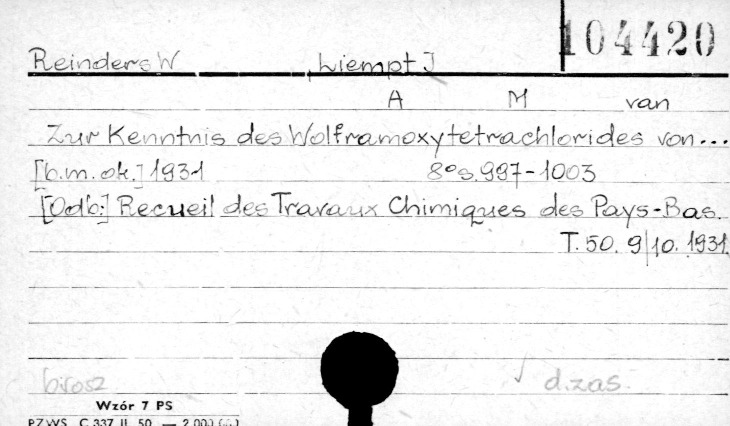 104420
Reinders W Liempt J
A M van
Zur Kenntnis des Wolframoxytetrachlorides von...
[b.m.ok.] 1931 8° s.997-1003
[Odb:] Recueil des Travaux Chimiques des Pays-Bas.
T. 50. 9/10. 1931.
brosz √ d.zas.
Wzór 7 PS
PZWS C 337 II 50 — 2.000